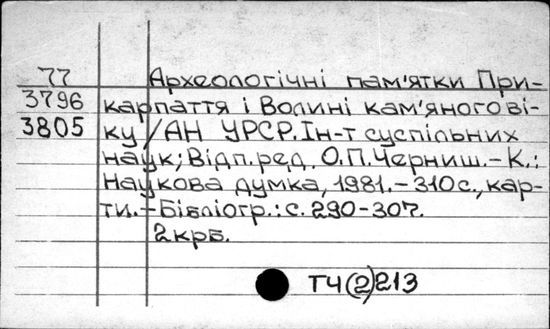 77 Археологічні пам'ятки При-
3796 карпаття і Волині кам'яного ві-
3805 ку / АН УРСР. Ін-т суспільних
наук; Відп. ред. О.П. Черниш. – К.:
Наукова думка, 1981. – 310 с., кар-
ти. – Бібліогр.: с. 290-307.
2 крб.
ТЧ(2)213